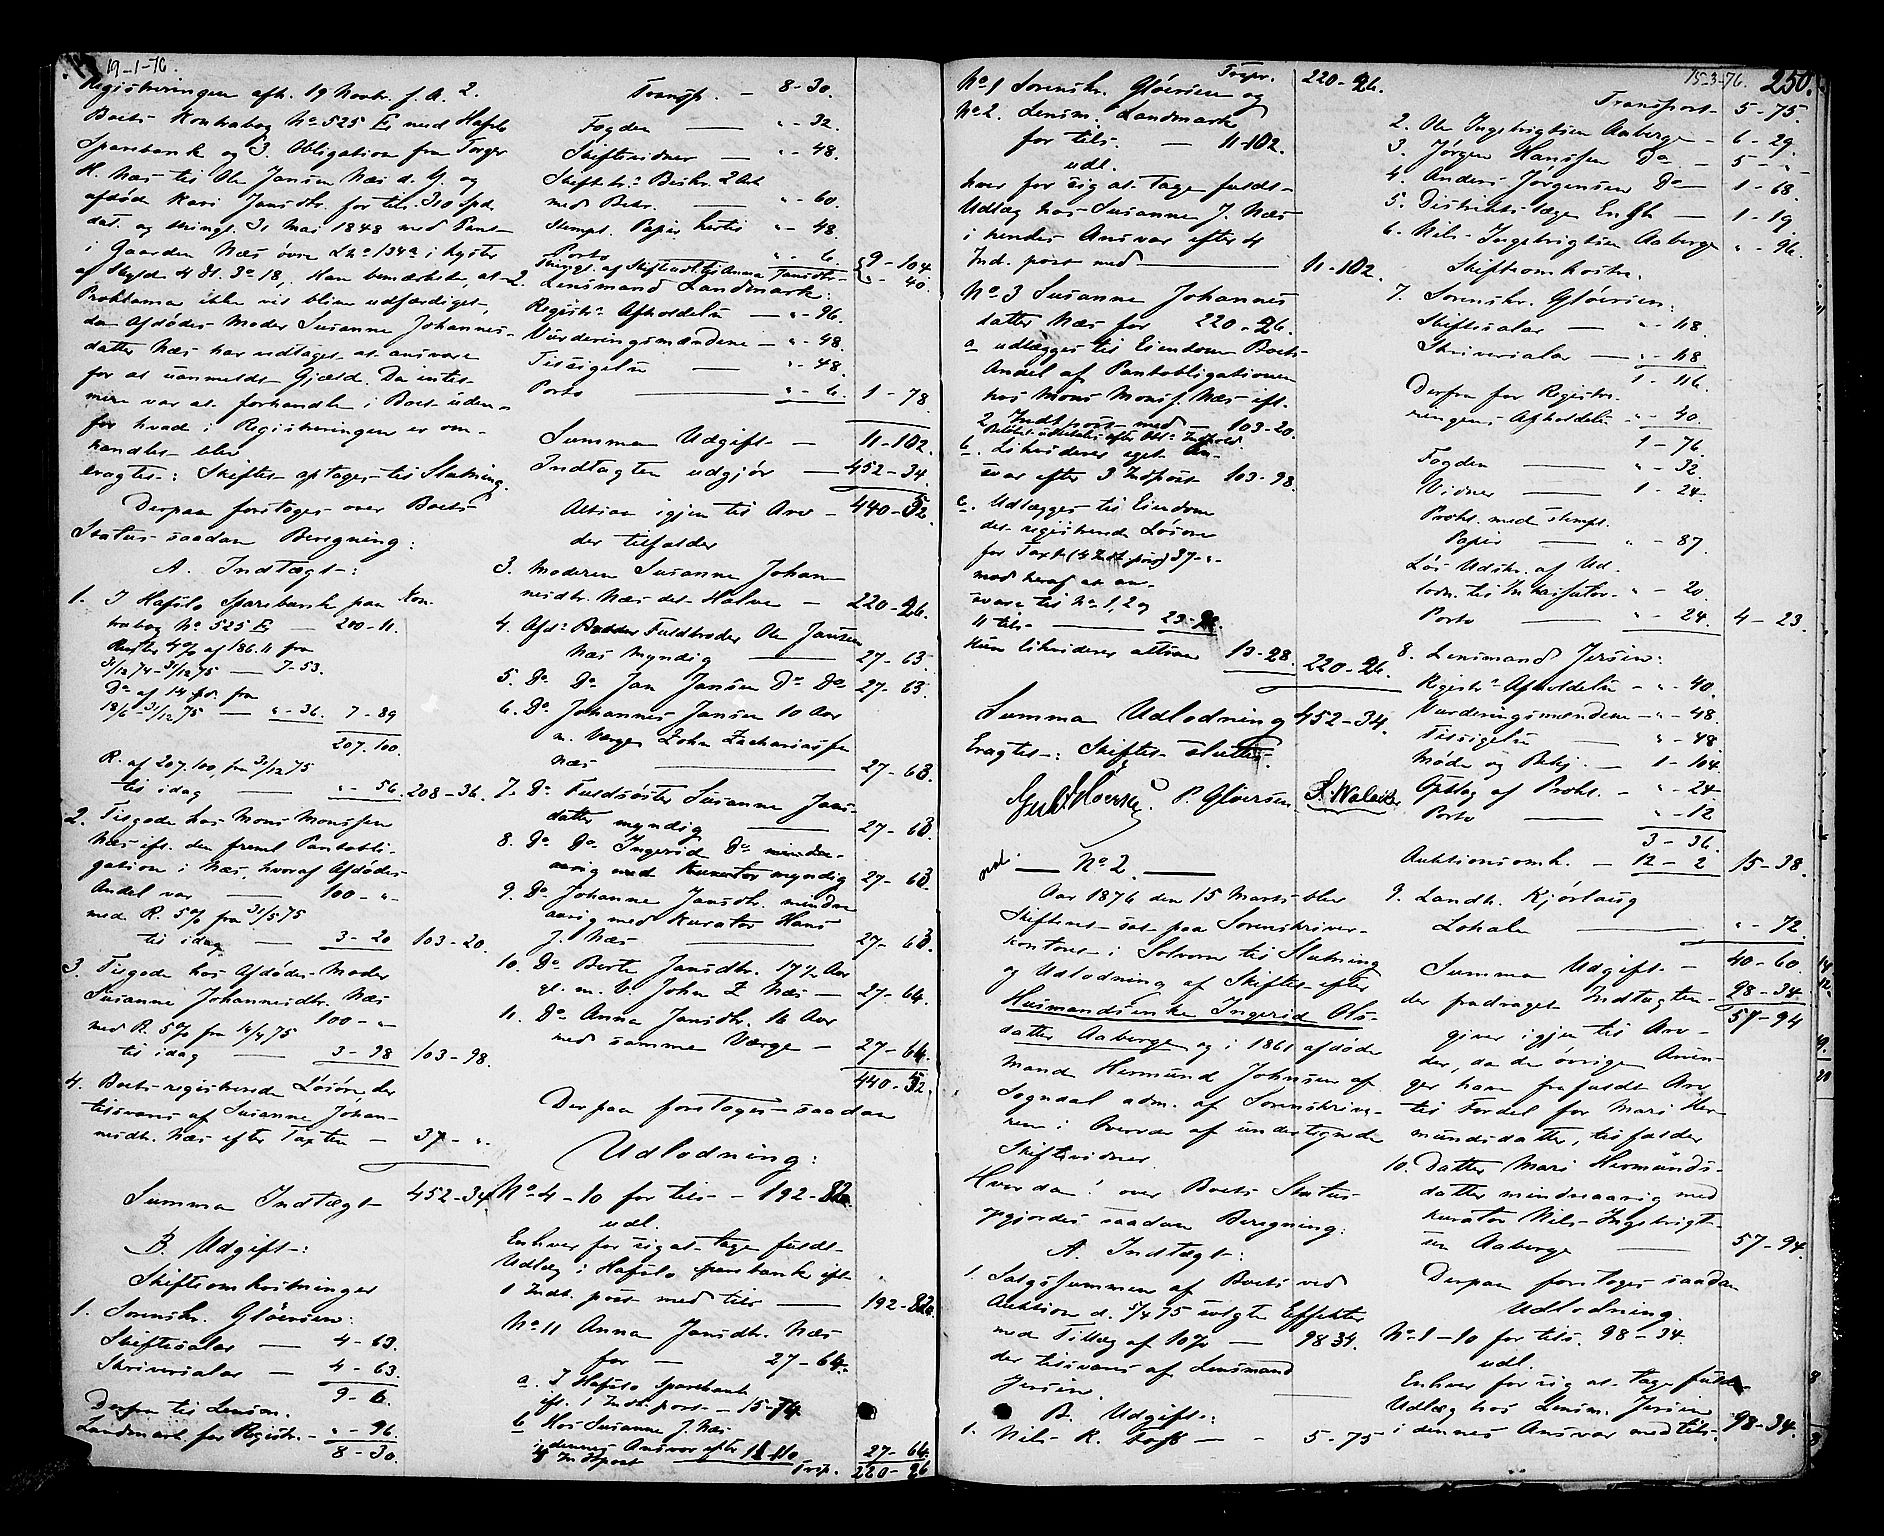 19-1-76.
Registreringen afh. 19 Novbr. f. A. 2.
Boets Kontrabog No 525 E. med Hafslo
Sparebank og 3. Obligation fra Torger
H. Næs til Ole Jansen Næs d. y. og
afdøde Kari Jansdtr. for tils. 310 Spd.
dat. og thingl. 31 Mai 1848 med Pant
i Gaarden Næs øvre
af Skyld
Proklama ikke vil blive udfærdiget,
da Afdødes Moder Susanne Johannes-
datter Næs har udtaget at ansvare
for al uanmeldt Gjæld. Da intet
mere var at forhandle i Boet uden-
for hvad i Registreringen er om-
handlet blev
eragtet: Skiftet optages til Slutning.
Derpaa foretoges over Boets
Status saadan Beregning:
A. Indtægt:
1. I Hafslo Sparebank paa Kon-
trabog No 525 E. — 200-11.
Renter 4% af 186.11 fra
31/12 74-31/12 75 — 7-53.
Do af 14 fra
18/6-31/12 75 — "-36. 7-89
207.100.
R. af 207.100, fra 31/12 75
til idag — "-56. 208-36.
2. Tilgode hos Mons Monssen
Næs ifl. den freml. Pantobli-
gation i Næs, hvoraf Afdødes
Andel var — 100-"-
med R. 5% fra 31/5 75
til idag — 3-20 103-20.
3. Tilgode hos Afdødes Moder
Susanne Johannesdtr. Næs
100-"
med R. 5% fra 14/4 75
til idag — 3-98 103-98.
4. Boets registrerede Løsøre, der
tilsvares af Susanne Johan-
nesdtr. Næs efter Taxten — 37-"-
Summa Indtægt 452-34.
B. Udgift:
Skifteomkostninger
1. Sorenskr. Gløersen:
Skiftesalar — 4-63.
Skriversalar — 4-63.
9-6.
Derfra til Lensm.
Landmark for Registr. — "-96.
8-30.
Transp. — 8-30.
Fogden — "-32.
Skiftevidner — "-48.
Skiftebr. Beskr. 2 Ark
med Bekr. — "-60.
Stempl. Papir hertil "-48.
Porto "-6. 9-104.
Thingl. af Skifteudl. til Anna Jansdtr. "-40.
2. Lensmand Landmark:
Registr. Afholdelse — "-96.
Vurderingsmændene — "-48.
Tilsigelse — "-48.
Porto — "-6. 1-78.
Summa Udgift — 11-102.
Indtægten udgjør — 452-34.
Altsaa igjen til Arv — 440-52.
der tilfalder
3. Moderen Susanne Johan-
nesdtr. Næs det Halve — 220-26.
4. Afd. Fuldbroder Ole Jansen
Næs myndig — 27-63.
5. Do Do Jan Jansen Do Do 27-63.
6. Do Johannes Jansen 10 Aar
m. Værge John Zachariassen
Næs — 27-63.
7. Do Fuldsøster Susanne Jans-
datter myndig — 27-63
8. Do Do Ingerid Do mindre-
aarig med Kurator myndig 27-63.
9. Do Johanne Jansdtr. mindre-
aarig med Kurator Hans
J. Næs — 27-63.
10. Do Berte Jansdtr. 17½ Aar
gl. m. V. John Z Næs — 27-64.
11. Do Anna Jansdtr. 16 Aar
med samme Værge — 27-64.
440-52.
Derpaa foretoges saadan
Udlodning:
No 4-10 for tils — 192-82.
udl.
Enhver for sig at tage fuldt
Udlæg i Hafslo Sparebank ifl.
1 Indt. post med tils — 192-82.
No 11 Anna Jansdtr. Næs
for — 27-64.
a. I Hafslo Sparebank
ifl. 1 Indt. post — 15-74.
b Hos Susanne J. Næs
i dennes Ansvar efter 11-110
4 Indtpost 27-64.
Trsp. 220-26
Trspr. 220-26.
No 1 Sorenskr. Gløersen og
No 2. Lensm. Landmark
for tils. — 11-102.
udl.
hver for sig at tage fuldt
Udlæg hos Susanne J. Næs
i hendes Ansvar efter 4
Ind. post med — 11-102.
No 3 Susanne Johannes-
datter Næs for 220-26.
a udlægges til Eiendom Boets
Andel af Pantobligationen
hos Mons Monss. Næs ifl.
2 Indt post med — 103-20.
b. Likviderer eget An-
svar efter 3 Indpost 103-98.
c. Udlægges til Eiendom
det registrerede Løsøre
for Taxt (4 Indt. post) 37-"-
mod heraf at an-
svare til No 1, 2 og
11 tils —
Hun likviderer altsaa 13-28. 220-26.
Summa Udlodning 452-34.
Eragtet: Skiftet sluttet.
P. Gløersen.
No 2.
Aar 1876 den 15 Marts blev
Skifteret sat paa Sorenskriver-
kontoret i Solvorn til Slutning
og Udlodning af Skiftet efter
Husmandsenke Ingerid Ols-
datter Aaberge og i 1861 afdøde
Mand Hermund Johnsen af
Sogndal adm. af Sorenskrive-
ren i Overvær af undertegnede
Skiftevidner.
Hvorda! over Boets Status
opgjordes saadan Beregning:
A. Indtægt:
1. Salgssummen af Boets ved
Auktion d. 5/4 75 solgte Effekter
med Tillæg af 10% — 98 34.
der tilsvares af Lensmand
Jersin.
B. Udgift:
1. Nils R. — 5-75
15-3-76. 250.
Transport 5-75.
2. Ole Ingebrigtsen Aaberge — 6-29.
3. Jørgen Hanssen Do — 5-"-
4. Anders Jørgensen Do — 1-68.
5. Distriktslæge Engh — 1-19
6. Nils Ingebrigtsen Aaberge "-96.
Skifteomkostn.
7. Sorenskr. Gløersen:
Skiftesalar — "-118
Skriversalar — "-118
1-116.
Derfra for Registre-
ringens Afholdelse "-40.
1-76.
Fogden — "-32
Vidner — 1-24.
Prokl. med stempl.
Papir — "-87.
Løs Udskr. af Ud-
lodn. til Inkassator "-20
Porto — "-24. 4-23.
8. Lensmand Jersin:
Registr. Afholdelse — "-40.
Vurderingsmændene — "-48.
Tilsigelse — "-48
Møde og Behj. — 1-104.
Opslag af Prokl. — "-24
Porto — "-12
3-36.
Auktionsomk. — 12-2 15-38.
9. Landh. Kjørlaug
Lokale — "-72.
Summa Udgift — 40-60.
der fradraget Indtægten 98-34.
57-94
giver igjen til Arv —
der, da de øvrige Arvin-
ger have frafaldt Arv
til Fordel for Mari Her-
mundsdatter, tilfalder
10. Datter Mari Hermunds-
datter mindreaarig med
Kurator Nils Ingebrigt-
sen Aaberge — 57-94.
Derpaa foretoges saadan
Udlodning.
No 1-10 for tils. 98-34.
udl.
Enhver for sig at tage fuldt
Udlæg hos Lensm. Jersin
i dennes Ansvar med tils. 98-34.